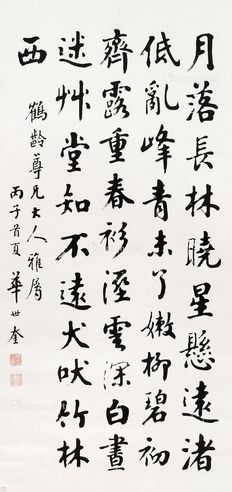 月落長林曉星懸遠渚
低亂峰青未了嫩柳碧初
齊露重春衫溼雲深白晝
迷艸堂知不遠犬吠竹林
西
鶴齡尊兄大人雅屬
丙子首夏華世奎